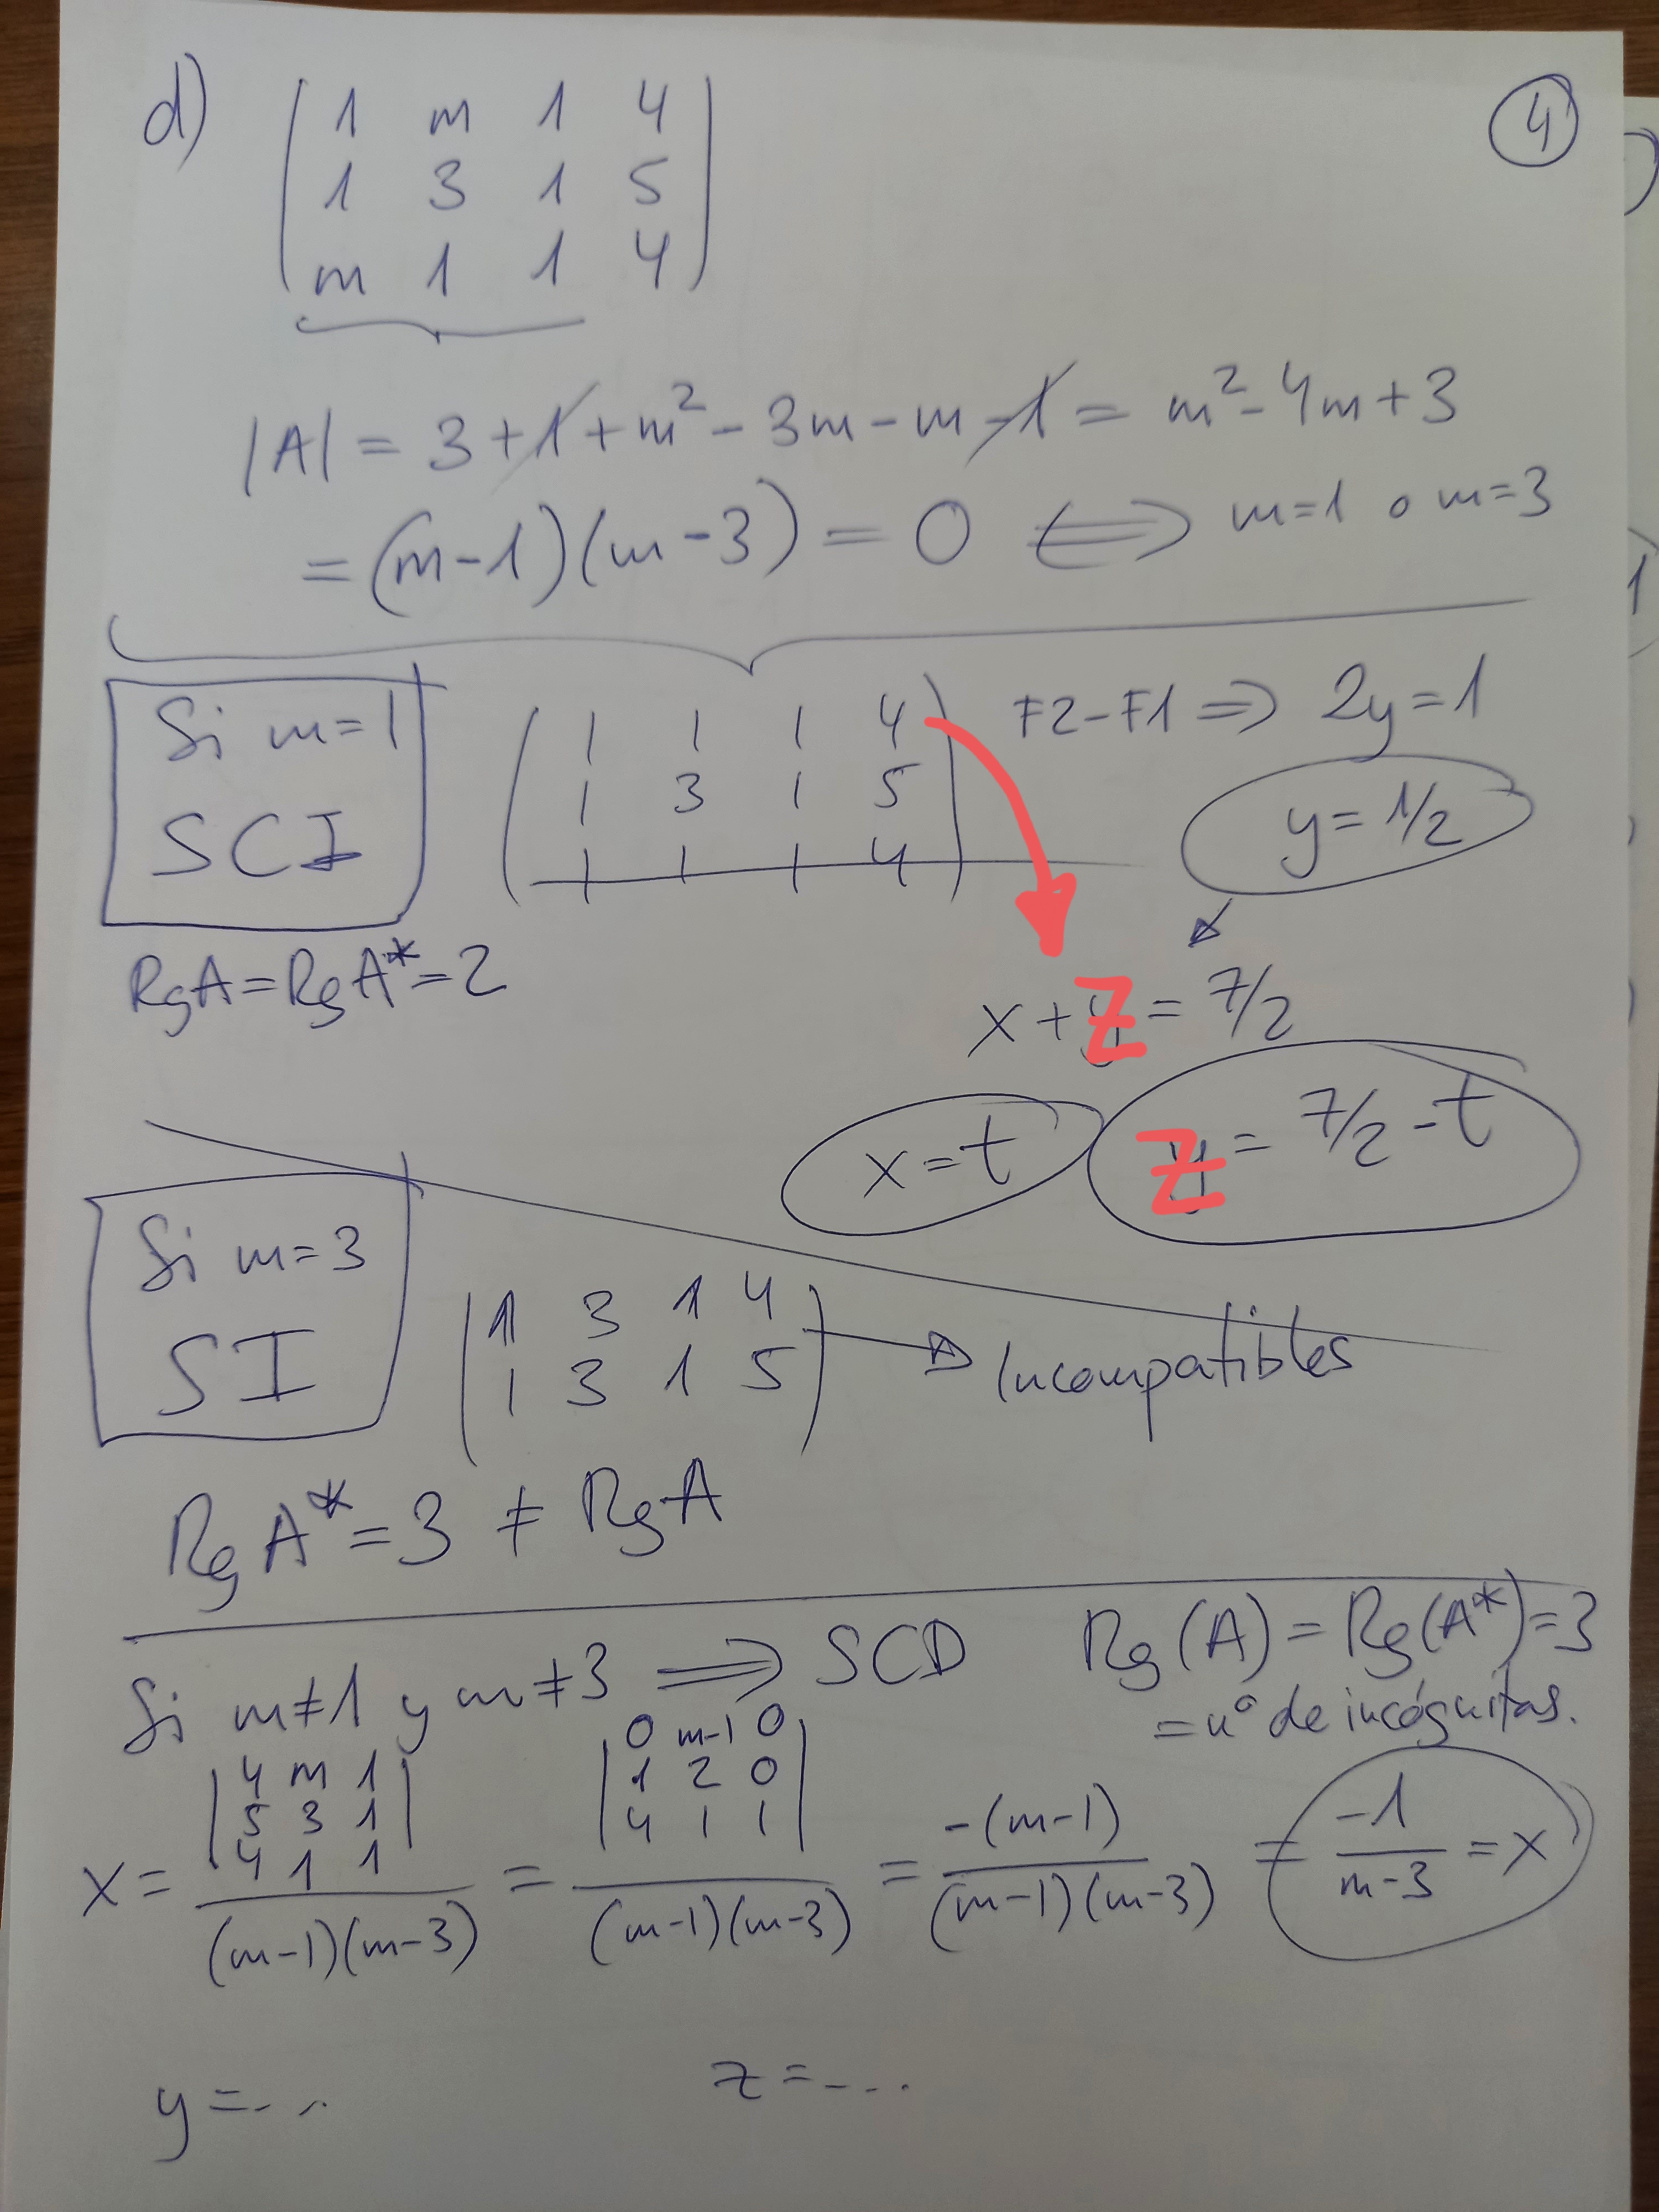 d) ( 1 m 1 4
1 3 1 5
m 1 1 4 )
④
|A| = 3 + 1 + m² - 3m - m - 1 = m² - 4m + 3
= (m-1)(m-3) = 0 ⟺ m=1 o m=3
Si m=1
SCI
( 1 1 1 4
1 3 1 5
1 1 1 4 )
F2-F1 ⇒ 2y=1
y = 1/2
RgA = RgA* = 2
x + z = 7/2
x = t
z = 7/2 - t
Si m=3
SI
( 1 3 1 4
1 3 1 5 )
→ Incompatibles
Rg A* = 3 ≠ RgA
Si m≠1 y m≠3 ⟹ SCD
Rg(A) = Rg(A*) = 3
= nº de incógnitas.
x = | 4 m 1
5 3 1
4 1 1 | / (m-1)(m-3)
= | 0 m-1 0
1 2 0
4 1 1 | / (m-1)(m-3)
= -(m-1) / (m-1)(m-3) = -1 / m-3 = x
y = ...
z = ...